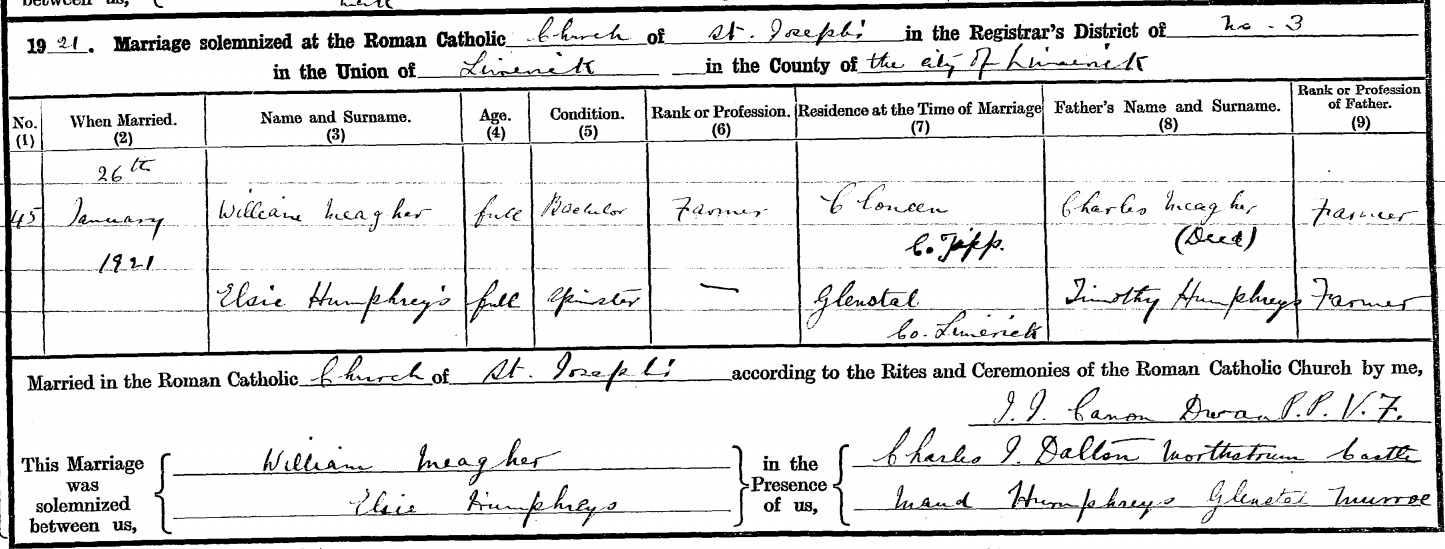 between us,
1921. Marriage solemnized at the Roman Catholic Church of St. Joseph's in the Registrar's District of No. 3
in the Union of Limerick in the County of the city of Limerick
No. (1) When Married. (2) Name and Surname. (3) Age. (4) Condition. (5) Rank or Profession. (6) Residence at the Time of Marriage (7) Father's Name and Surname. (8) Rank or Profession of Father. (9)
26th
45 January William Meagher full Bachelor Farmer Cloneen Charles Meagher Farmer
C. Tipp. (Decd)
1921
Elsie Humphreys full Spinster — Glenstal Timothy Humphreys Farmer
Co. Limerick
Married in the Roman Catholic Church of St. Joseph's according to the Rites and Ceremonies of the Roman Catholic Church by me,
J. J. Canon Dwan P.P. V.F.
This Marriage was solemnized between us,
William Meagher
Elsie Humphreys
in the Presence of us,
Charles J. Dalton Castle
Maud Humphreys Glenstal Murroe